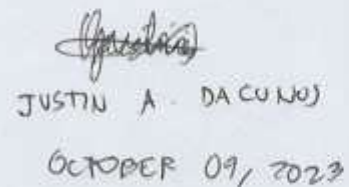 JUSTIN A. DACUNOS
OCTOBER 09, 2023